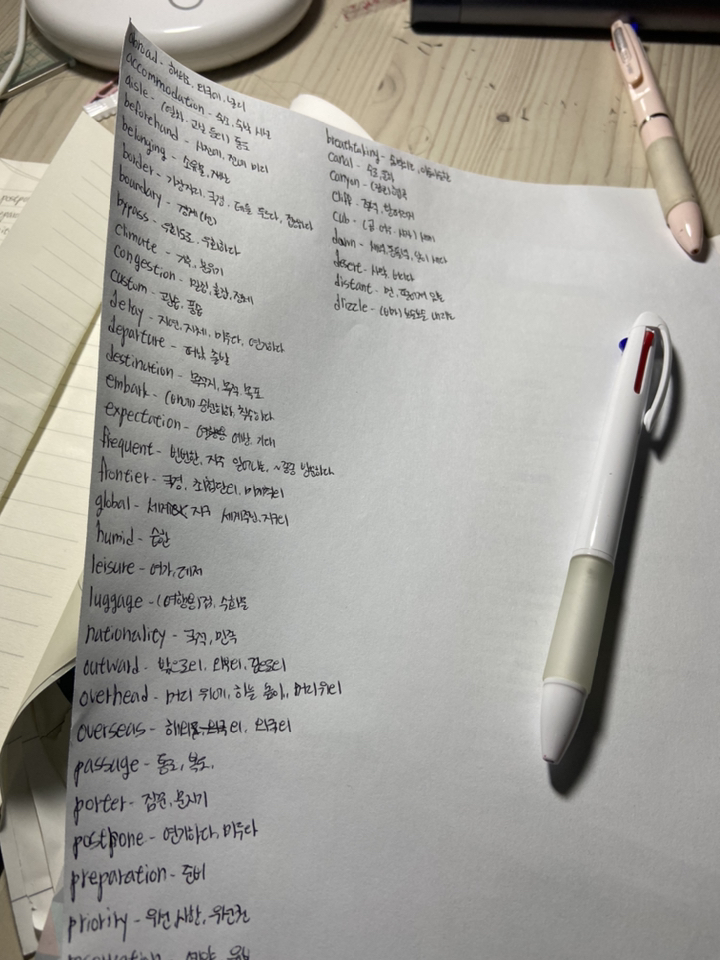 abroad - 해외로, 외국에, 널리
accommodation - 숙소, 숙박 시설
aisle - (열차·교실 등의) 통로
beforehand - 사전에, 전에 미리
belonging - 소유물, 재산
border - 가장자리, 국경, 테를 두르다, 접하다
boundary - 경계(선)
bypass - 우회도로, 우회하다
climate - 기후, 분위기
congestion - 밀집, 혼잡, 정체
custom - 관습, 풍습
delay - 지연, 지체, 미루다, 연기하다
departure - 떠남, 출발
destination - 목적지, 목적, 목표
embark - (배에) 승선하다, 착수하다
expectation - 예상, 기대
frequent - 빈번한, 자주 일어나는, ~ 방문하다
frontier - 국경, 최첨단의, 미개척의
global - 세계적인, 지구의
humid - 습한
leisure - 여가, 레저
luggage - (여행용)짐, 수화물
nationality - 국적, 민족
outward - 밖으로의, 외부의, 겉으로의
overhead - 머리 위에, 하늘 높이, 머리위의
overseas - 해외의, 외국의
passage - 통로, 복도,
porter - 짐꾼, 문지기
postpone - 연기하다, 미루다
preparation - 준비
priority - 우선 사항, 우선권
breathtaking -
canal - 수로, 운하
canyon - (깊은) 협곡
cliff - 절벽, 낭떠러지
cub - (곰·여우·사자) 새끼
dawn - 새벽, 동틀녘, 날이 새다
desert - 사막, 버리다
distant - 먼,
drizzle - (비가) 보슬보슬 내리다